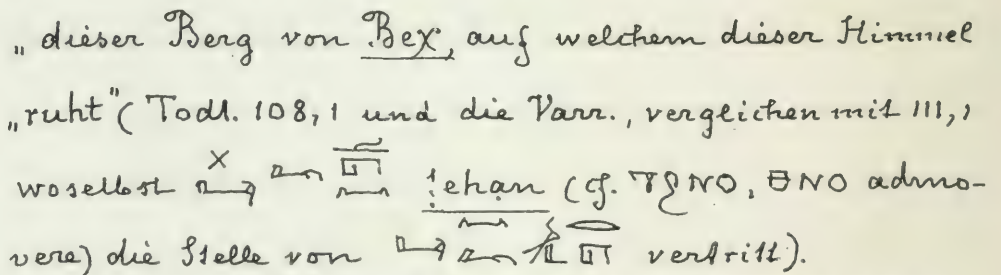 „dieser Berg von Bex, auf welchem dieser Himmel
„ruht“ (Todt. 108,1 und die Varr., verglichen mit 111,1
woselbst ṭehan (cf. ⲧϩⲛⲟ, ⲑⲛⲟ admo-
vere) die Stelle von vertritt).